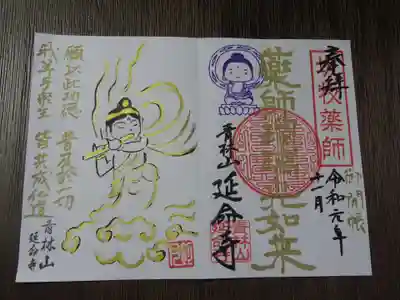 奉拝
薬師
御開帳
令和元年
十一月
藥師瑠璃光如来
青林山
延命寺
願以此功徳
普及於一切
我等与衆生
皆共成仏道
青林山
延命寺